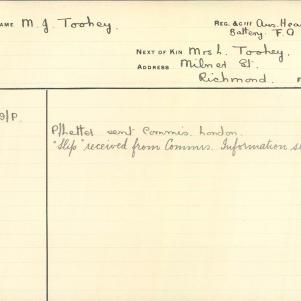 NAME M. J. Toohey. REG. & CIII Aus. Hea
Battery. F. A
NEXT OF KIN Mrs L. Toohey.
ADDRESS Milner St.
Richmond.
9/P.
P/Letter sent Commis. London.
"Slip" received from Commrs. Information s